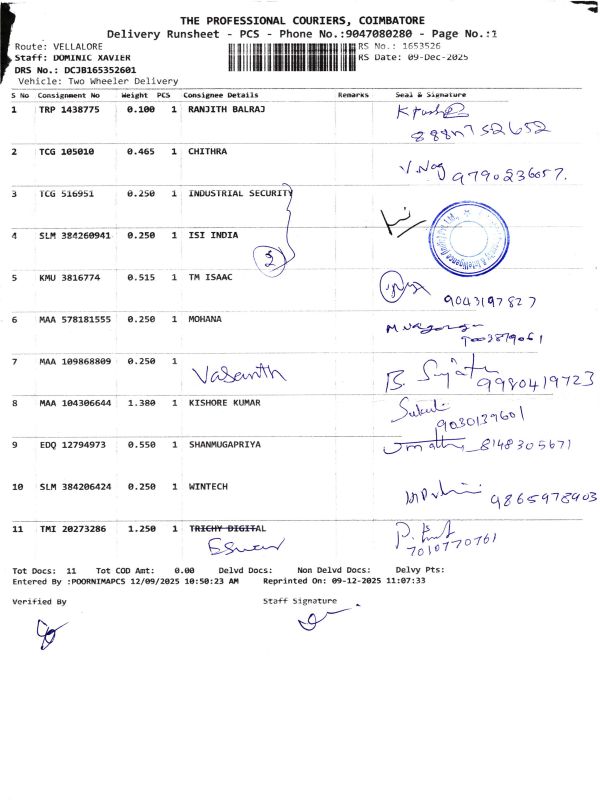 THE PROFESSIONAL COURIERS, COIMBATORE
Delivery Runsheet - PCS - Phone No.:9047080280 - Page No.:1
Route: VELLALORE
RS No.: 1653526
Staff: DOMINIC XAVIER
RS Date: 09-Dec-2025
DRS No.: DCJB165352601
Vehicle: Two Wheeler Delivery
S No Consignment No Weight PCS Consignee Details Remarks Seal & Signature
1 TRP 1438775 0.100 1 RANJITH BALRAJ
2 TCG 105010 0.465 1 CHITHRA
V.Nag 9790236657.
3 TCG 516951 0.250 1 INDUSTRIAL SECURITY
4 SLM 384260941 0.250 1 ISI INDIA
2
5 KMU 3816774 0.515 1 TM ISAAC
9043197827
6 MAA 578181555 0.250 1 MOHANA
7 MAA 109868809 0.250 1
Vasanth
B. Sujatha 9980419723
8 MAA 104306644 1.380 1 KISHORE KUMAR
9030139601
9 EDQ 12794973 0.550 1 SHANMUGAPRIYA
8148305671
10 SLM 384206424 0.250 1 WINTECH
9865978903
11 TMI 20273286 1.250 1 TRICHY DIGITAL
Eswar
7010770761
Tot Docs: 11 Tot COD Amt: 0.00 Delvd Docs: Non Delvd Docs: Delvy Pts:
Entered By :POORNIMAPCS 12/09/2025 10:50:23 AM Reprinted On: 09-12-2025 11:07:33
Verified By Staff Signature